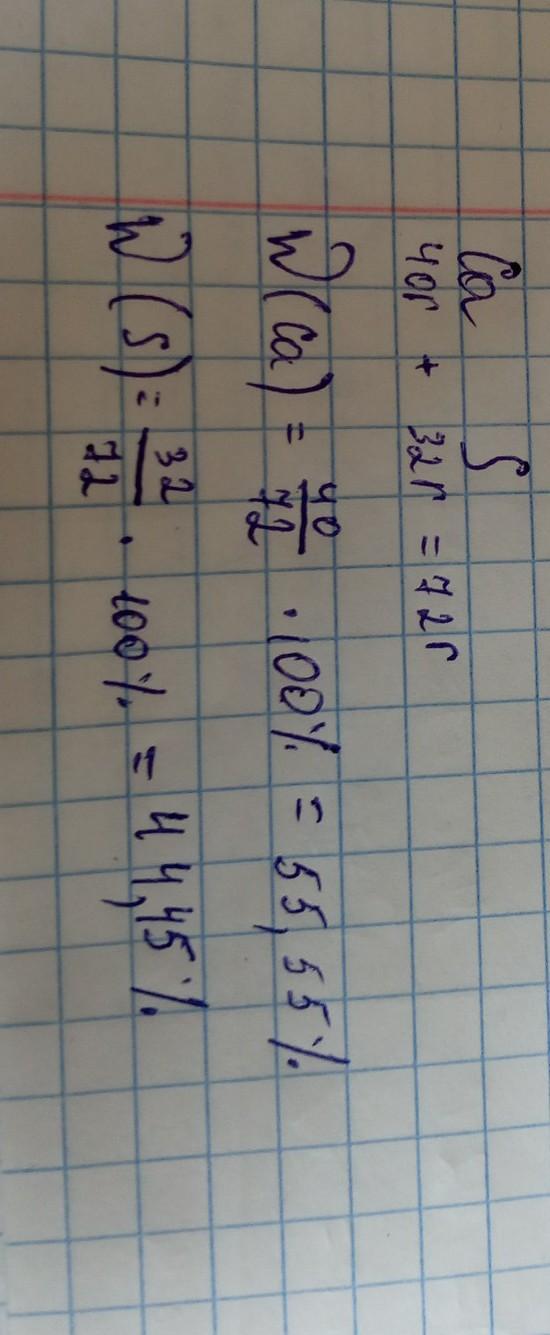 Ca S
40г + 32г = 72г
W (Ca) = 40/72 · 100% = 55,55%
W (S) = 32/72 · 100% = 44,45%